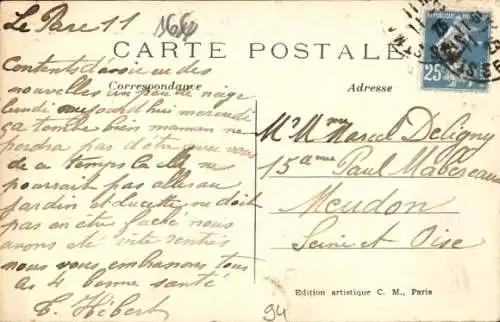 Le Parc 11
1664
CARTE POSTALE
Correspondance
Adresse
25
Contents d'avoir eu des
nouvelles un peu de neige
lundi aujourd'hui mercredi
ça tombe bien maman ne
perdra pas d'être avec vous
de ce temps là elle ne
pourrait pas aller au
jardin et Lucette ne doit
pas en être faché nous
avons été vite rentrés
nous vous embrassons tous
les 4 bonne santé
E. Hébert
Mr Mme Marcel Deligny
15 a rue Paul
Meudon
Seine et Oise
Edition artistique C. M., Paris
94